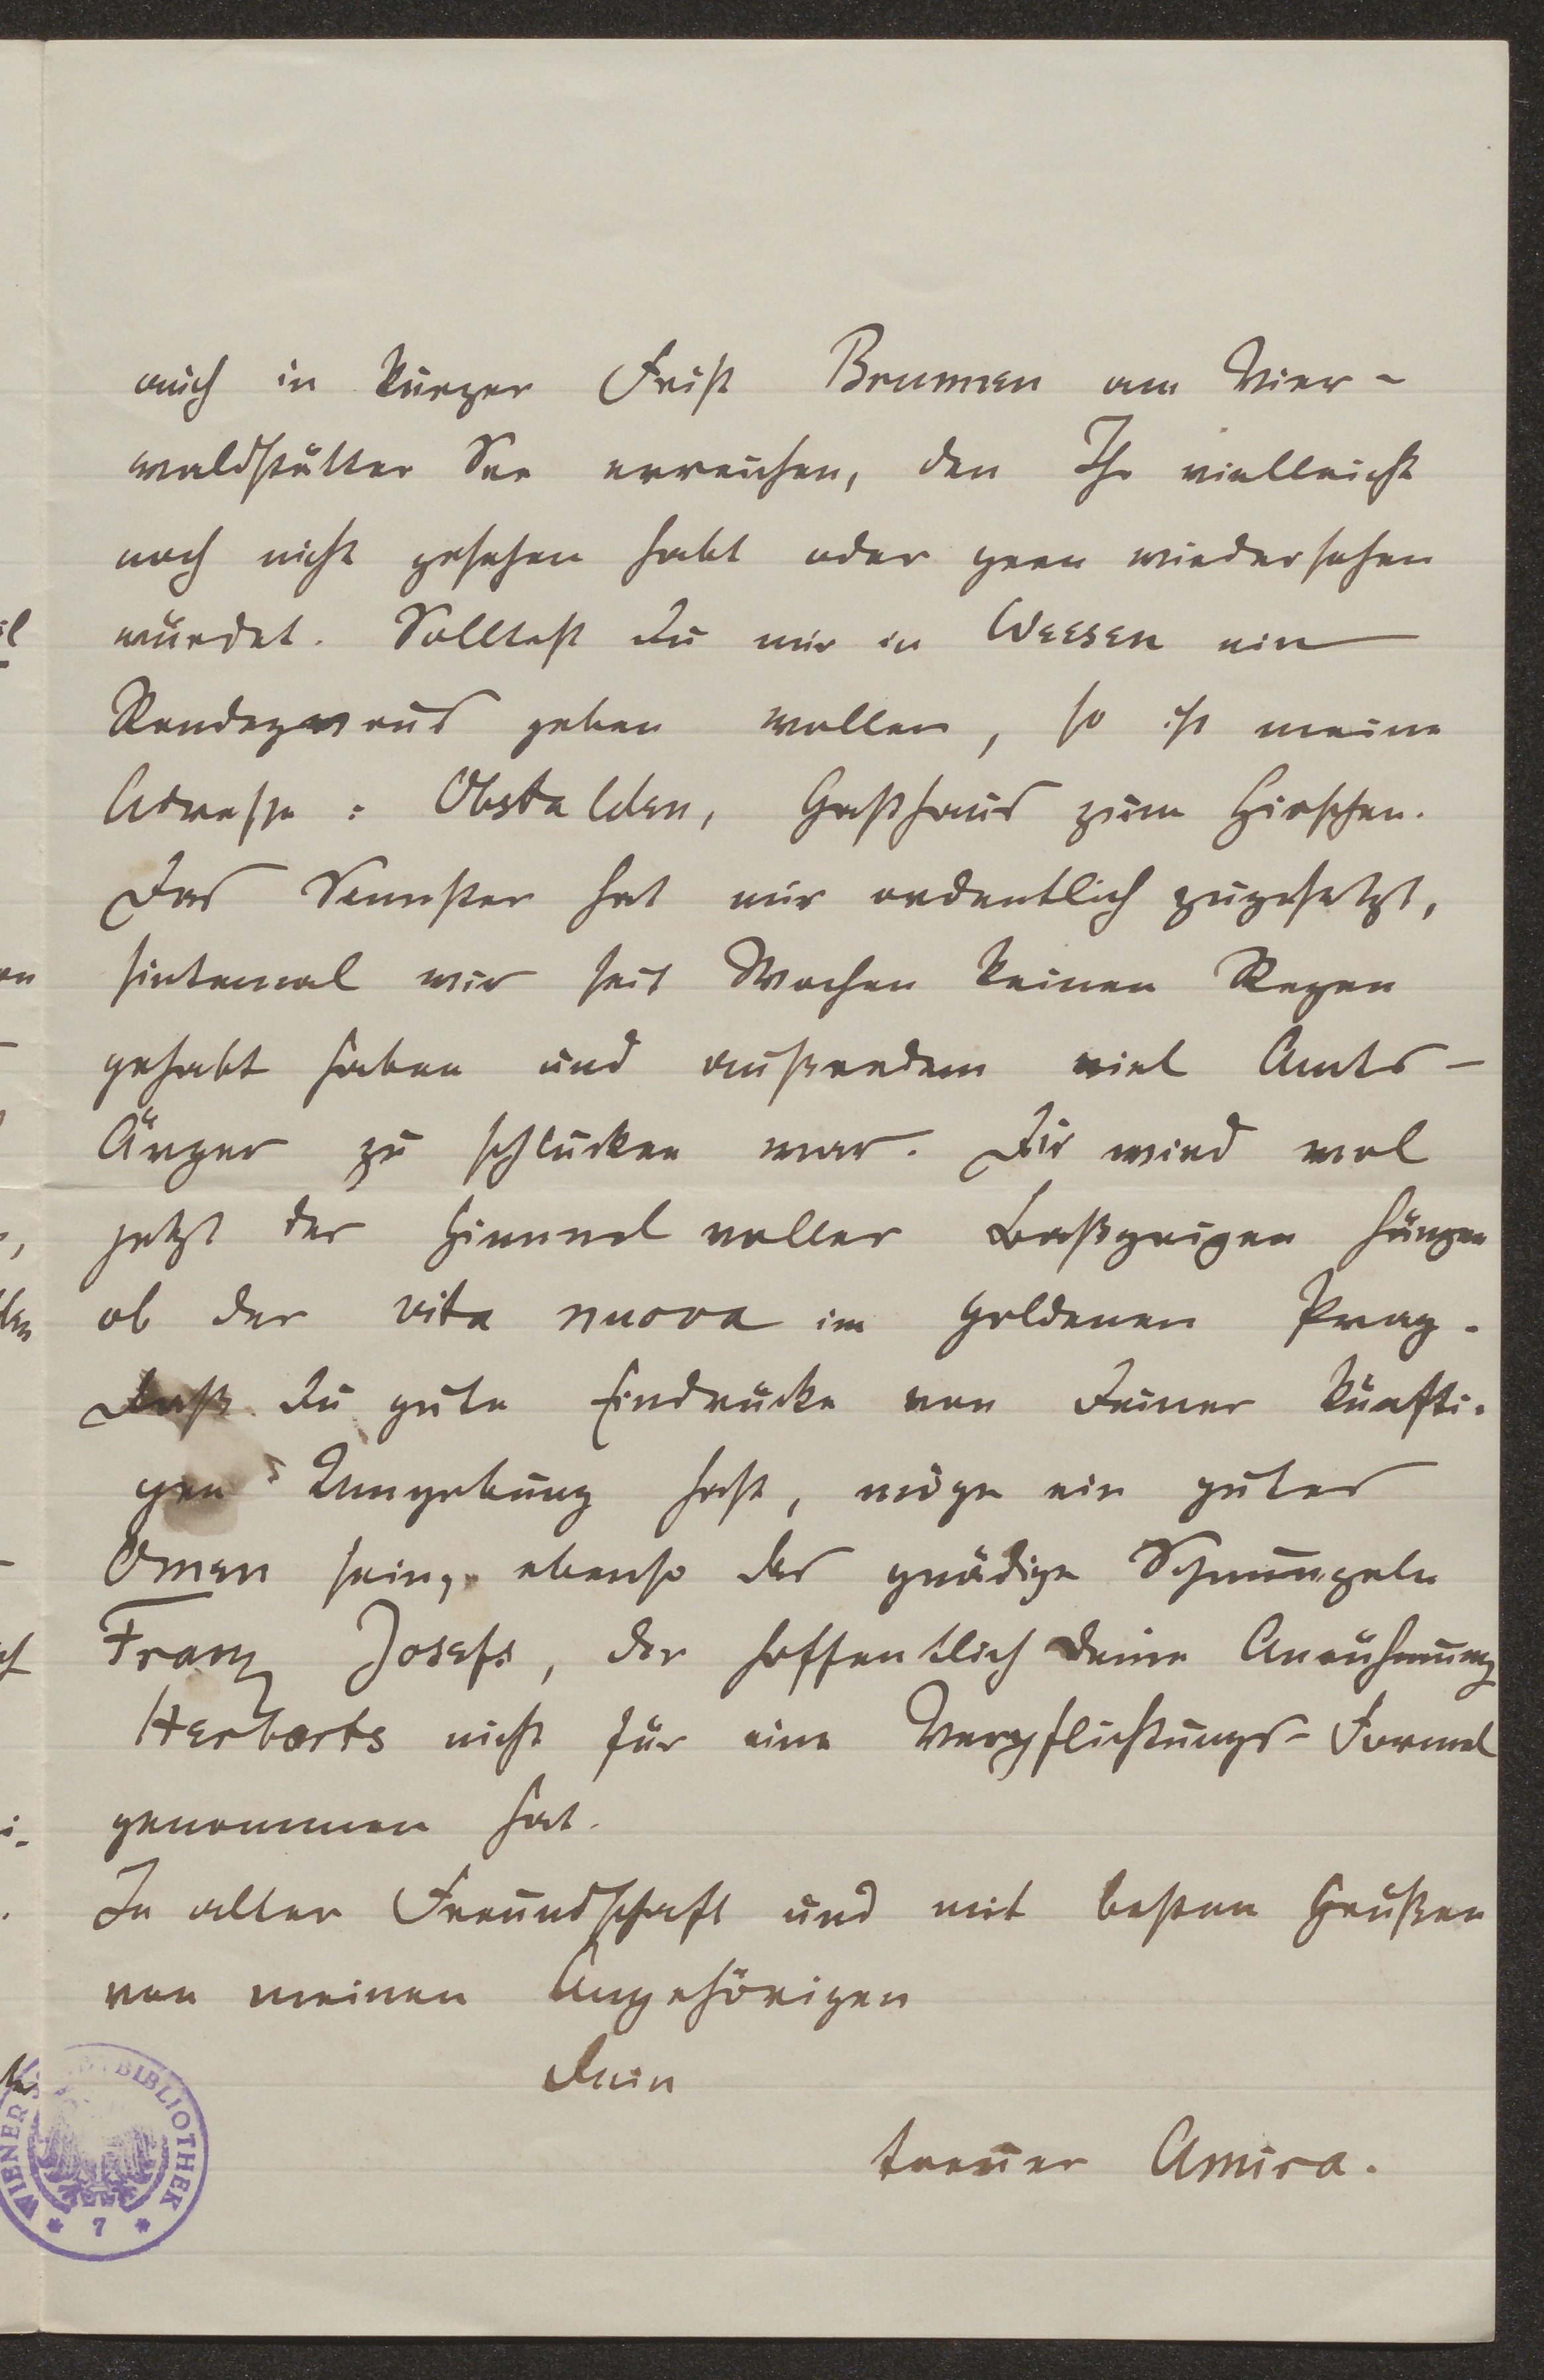 auch in kurzer Frist Brunnen am Vier-
waldstätter See erreichen, den Ihr vielleicht
noch nicht gesehen habt oder gern wiedersehen
würdet. Solltest Du mir in Weesen ein
Rendezvous geben wollen, so ist meine
Adresse: Obstalden, Gasthaus zum Hirschen.
Das Semester hat mir ordentlich zugesetzt,
sintemal wir seit Wochen keinen Regen
gehabt haben und außerdem viel Amts-
Ärger zu schlucken war. Dir wird wol
jetzt der Himmel voller Baßgeigen hängen
ob der vita nuova im goldenen Prag.
Daß Du gute Eindrücke von Deiner künfti-
gen Umgebung hast, möge ein gutes
Omen sein, ebenso das gnädige Schmunzeln
Franz Josefs, der hoffentlich Deine Anrühmung
Herbarts nicht für eine Verpflichtungs-Formel
genommen hat.
In alter Freundschaft und mit besten Grüßen
von meinen Angehörigen
Dein
treuer Amira.
WIENER BIBLIOTHEK
* 7 *